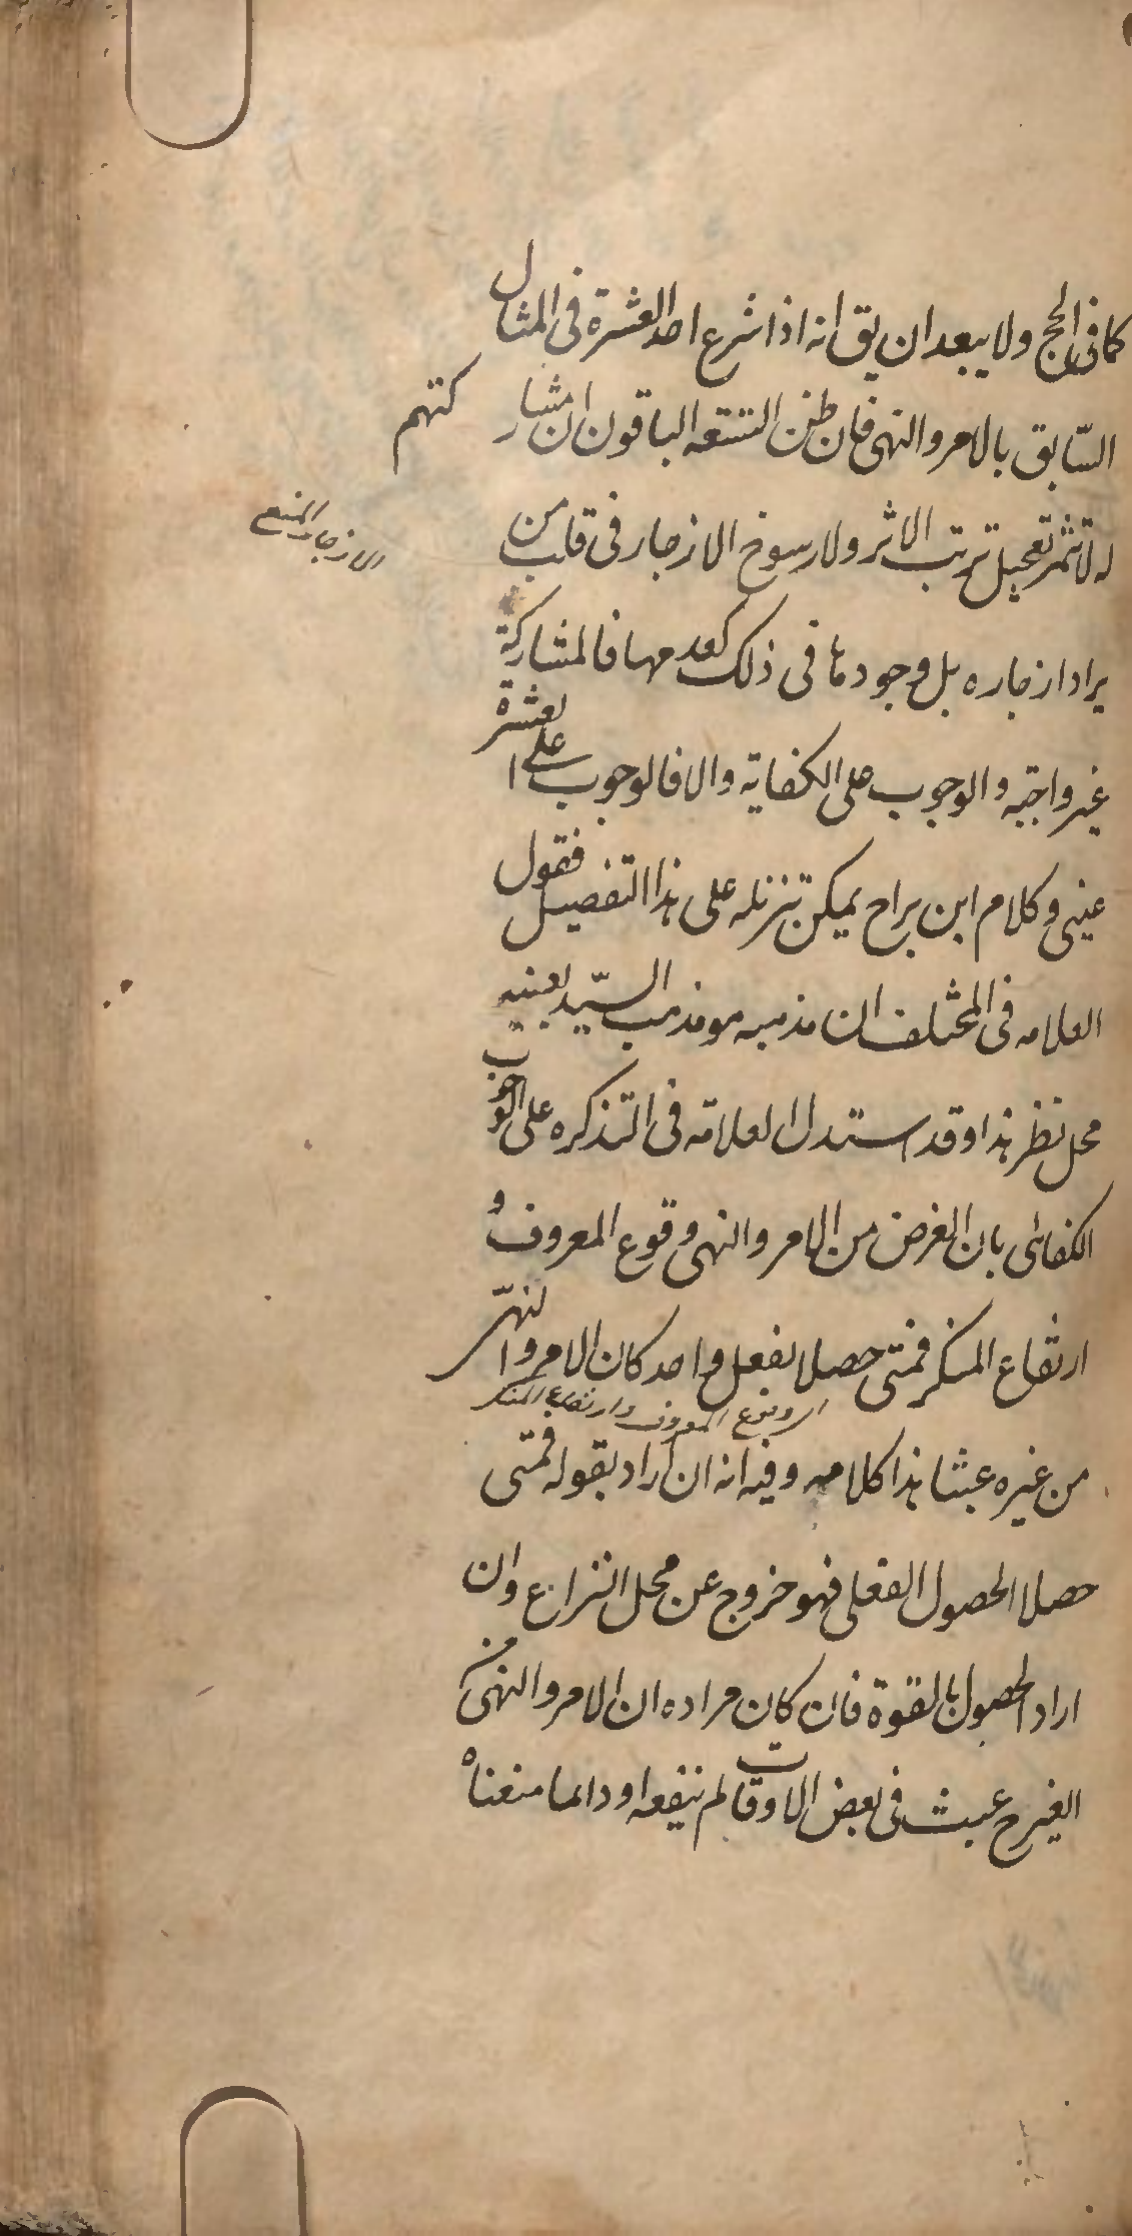 كما في الحج ولا يبعد ان يق انه اذا شرع احد العشرة في المثال
السّابق بالامر والنهي فان ظن التسعه الباقون ان مشاركتهم
له لا تثمر تعجيل ترتب الاثر ولا رسوخ الانزجار في قلب من
الانزجار المنع
يراد انزجاره بل وجودها في ذلك كعدمها فالمشاركة
غير واجبه والوجوب على الكفايه والا فالوجوب على العشرة
عيني وكلام ابن براج يمكن تنزيله على هذا التفصيل فقول
العلامه في المختلف ان مذهبه هو مذهب السيّد بعينه
محل نظر هذا وقد استدل العلامه في التذكره على الوجوب
الكفائي بان الغرض من الامر والنهي وقوع المعروف و
ارتفاع المنكر فمتى حصلا بفعل واحد كان الامر والنهي
اي وقوع المعروف وارتفاع المنكر
من غيره عبثا هذا كلامه وفيه انه ان اراد بقوله فمتى
حصلا الحصول الفعلي فهو خروج عن محل النزاع وان
اراد الحصول بالقوة فان كان مراده ان الامر والنهي من
الغير ح عبث في بعض الاوقات لم ينفعه او دائما منعناه